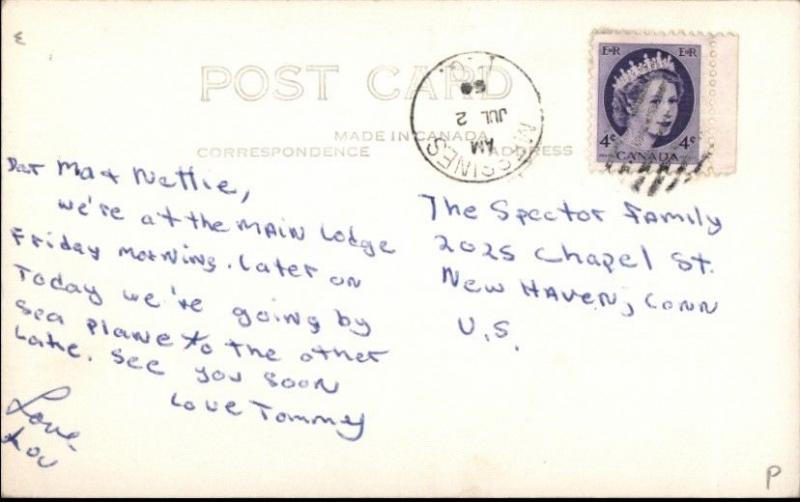 POST CARD
MADE IN CANADA
CORRESPONDENCE
ADDRESS
AM
JUL 2
E II R
E II R
4¢
4¢
CANADA
Dear Ma + Nettie,
we're at the MAIN Lodge
Friday morning. Later on
Today we're going by
sea plane to the other
Lake. See you soon
Love Tommy
Love,
Lou
The Spector Family
2025 Chapel St.
New Haven, Conn
U.S.
P